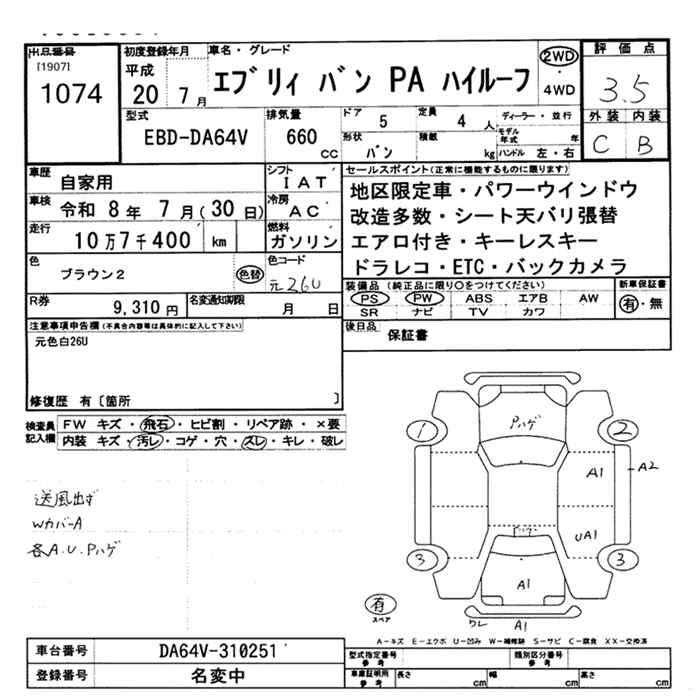 出品番号
[1907]
1074
初度登録年月
平成
20 7月
車名・グレード
エブリィ バン PA ハイルーフ
2WD
・
4WD
評価点
3.5
外装 内装
C B
型式
EBD-DA64V
排気量
660 cc
ドア 5
定員 4 人
形状 バン
積載 kg
ディーラー・並行
モデル年式 年
ハンドル 左・右
車歴 自家用
車検 令和 8年 7月(30日)
走行 10万7千400 km
色 ブラウン2 色替
シフト IAT
冷房 AC
燃料 ガソリン
色コード 元26U
セールスポイント(正常に機能するものに限ります)
地区限定車・パワーウインドウ
改造多数・シート天バリ張替
エアロ付き・キーレスキー
ドラレコ・ETC・バックカメラ
R券 9,310円
名変通知期限 月 日
装備品(純正品に限り○をつけてください)
PS PW ABS エアB AW
SR ナビ TV カワ
新車保証書
有・無
注意事項申告欄(不具合内容等は具体的に記入して下さい)
元色白26U
修復歴 有〔箇所 〕
後日品 保証書
検査員記入欄
FW キズ・飛石・ヒビ割・リペア跡・×要
内装 キズ・汚レ・コゲ・穴・スレ・キレ・破レ
送風出ず
WカバーA
各A.U.Pハゲ
Pハゲ
1
2
A1
A2
UA1
ハワ
3
3
A1
有
スペア
ワレ A1
A-キズ E-エクボ U-凹み W-補修跡 S-サビ C-腐食 XX-交換済
車台番号 DA64V-310251
登録番号 名変中
型式指定番号 参考
類別区分番号 参考
車庫証明用 参考
長さ cm
幅 cm
高さ cm